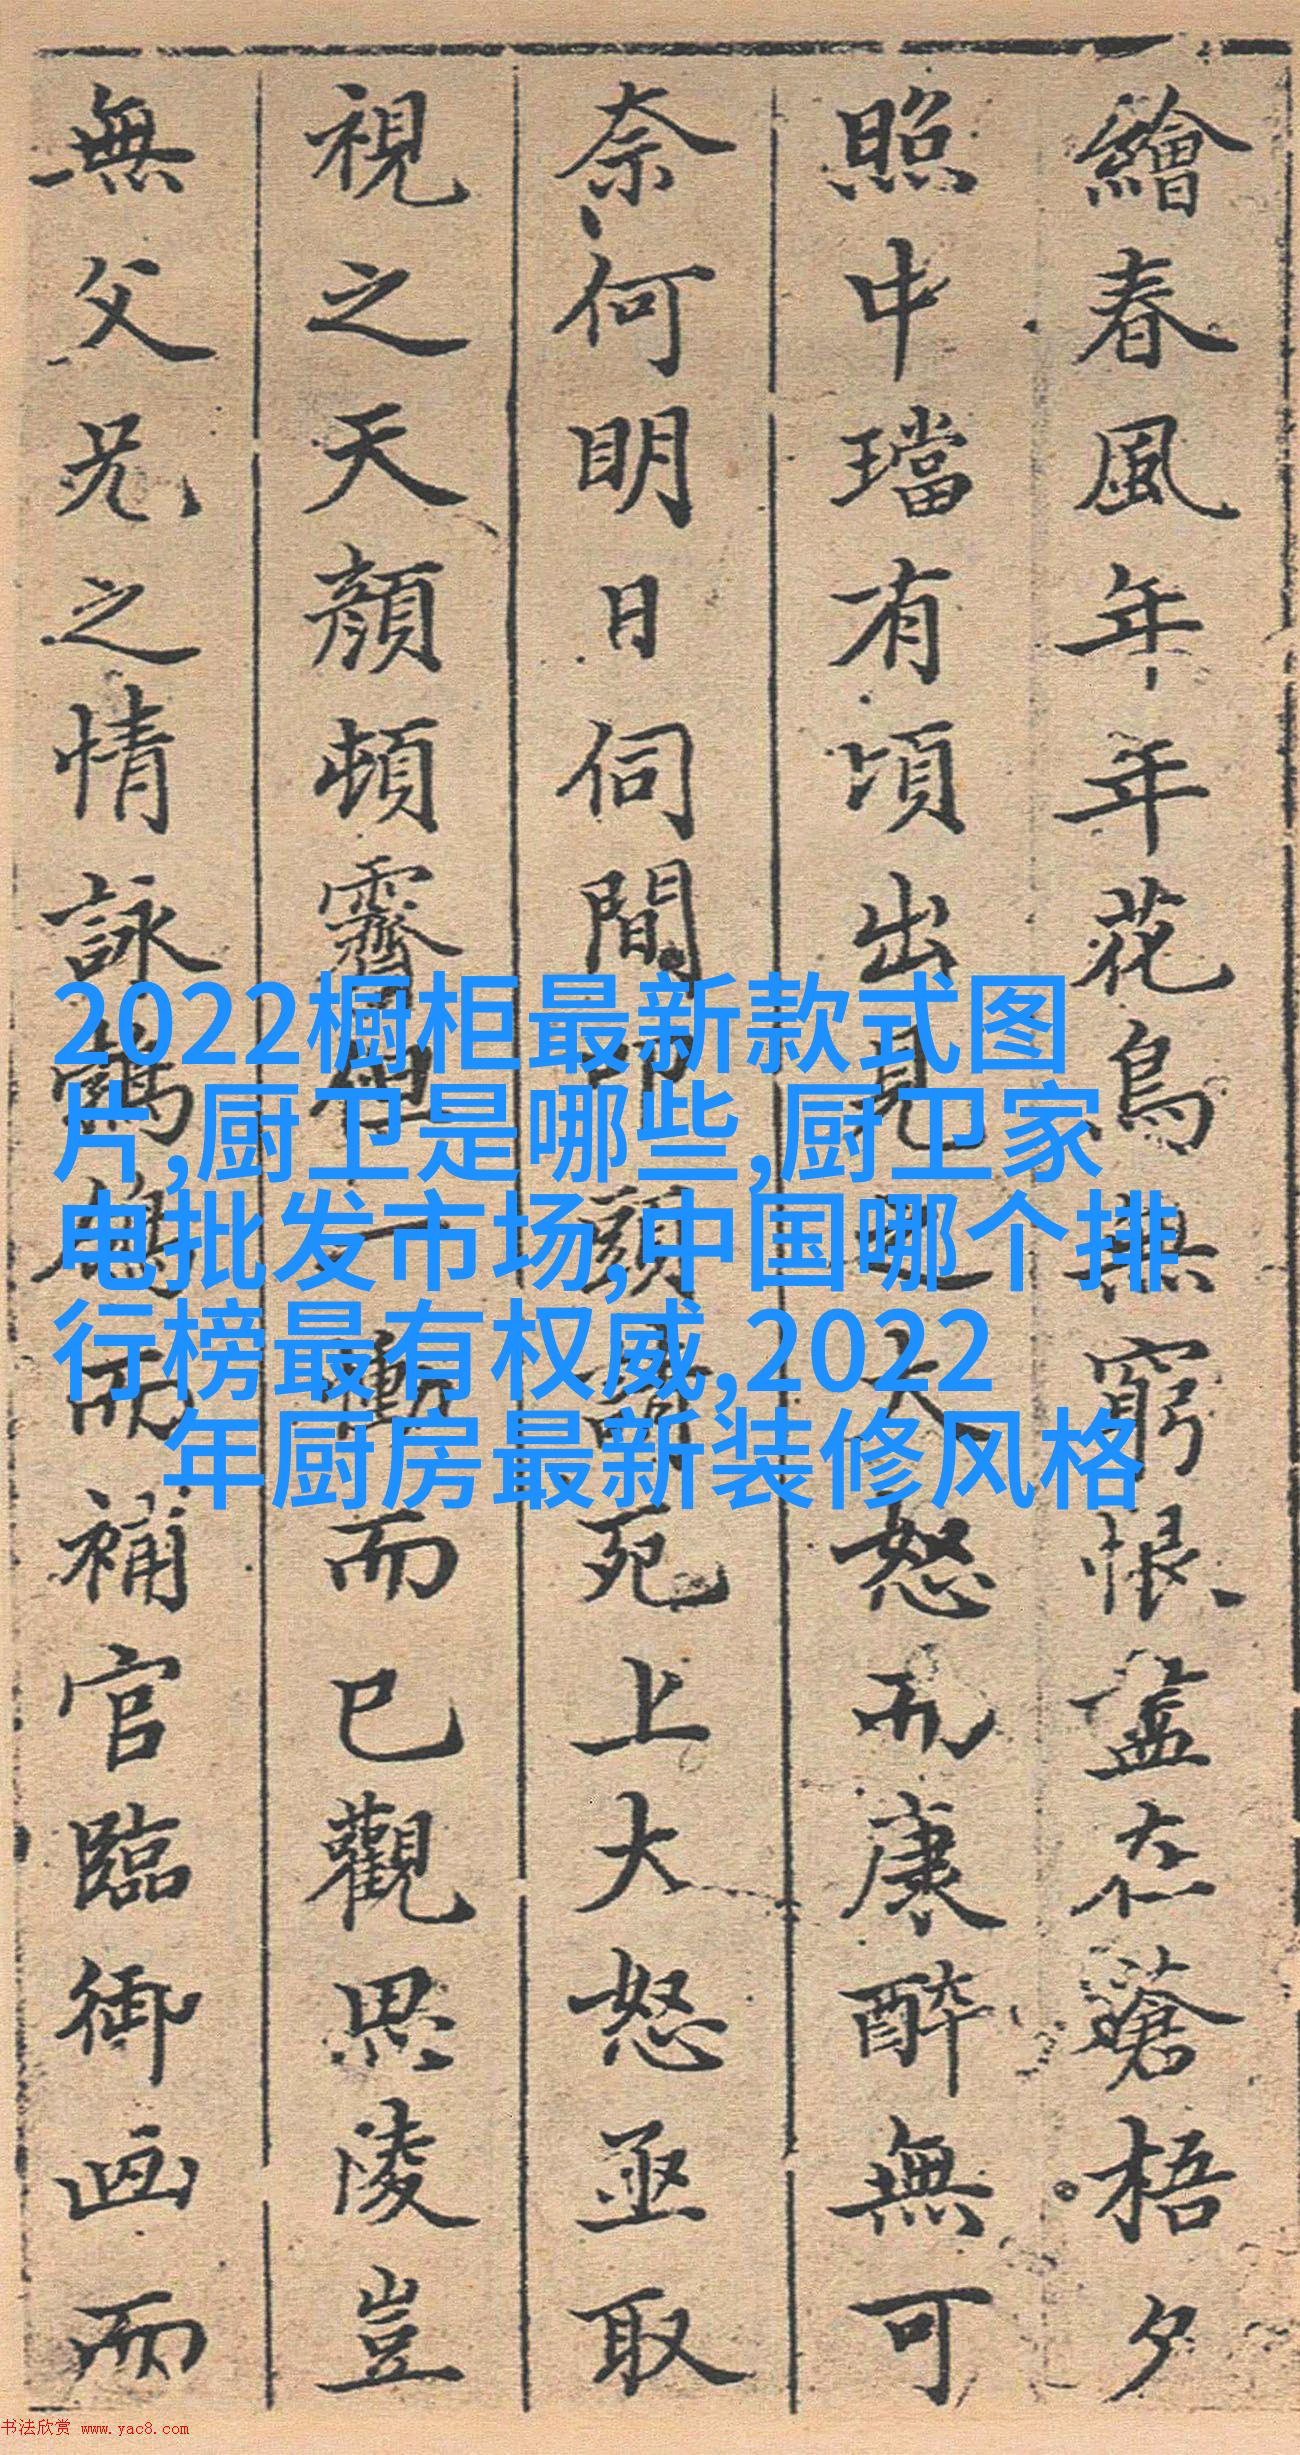 繪春風年年花鳥無窮恨盡在蒼梧夕
照中璫有頃出見大怒而康醉無可
奈何明日伺間叩頭請死上大怒亟取
視之天顔頓霽但一慟而已觀思陵豈
無父兄之情詠鶺鴒而補官臨御画而
2022橱柜最新款式图
片,厨卫是哪些,厨卫家
电批发市场,中国哪个排
行榜最有权威,2022
年厨房最新装修风格
书法欣赏 www.yac8.com